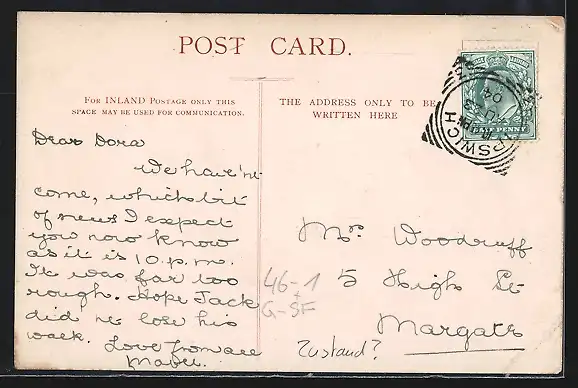 POST CARD.
FOR INLAND POSTAGE ONLY THIS
SPACE MAY BE USED FOR COMMUNICATION.
THE ADDRESS ONLY TO BE
WRITTEN HERE
HALF PENNY
Dear Dora
We have'nt
come, which bit
of news I expect
you now know
as it is 10. p.m.
It was far too
rough. Hope Jack
did n't lose his
walk. Love from all
Mabel.
Mrs Woodruff
5 High St
Margate
46-1
G-SF
Zustand?